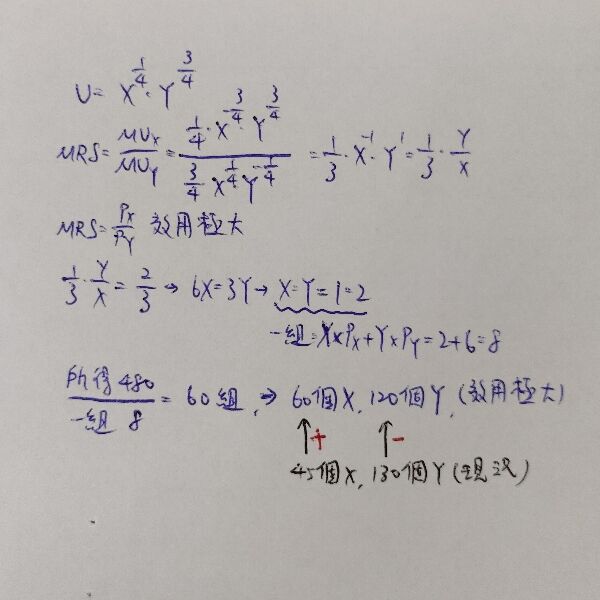 U= X^{1/4}·Y^{3/4}
MRS= MUx/MUy = (1/4·X^{-3/4}·Y^{3/4})/(3/4·X^{1/4}·Y^{-1/4}) = 1/3·X^{-1}·Y^{1}=1/3·Y/X
MRS=Px/Py 效用極大
1/3·Y/X=2/3→6X=3Y→X=Y=1=2
一組=X×Px+Y×Py=2+6=8
所得480/一組 8 = 60組,→ 60個X,120個Y,(效用極大)
↑+ ↑-
45個X,130個Y(現況)